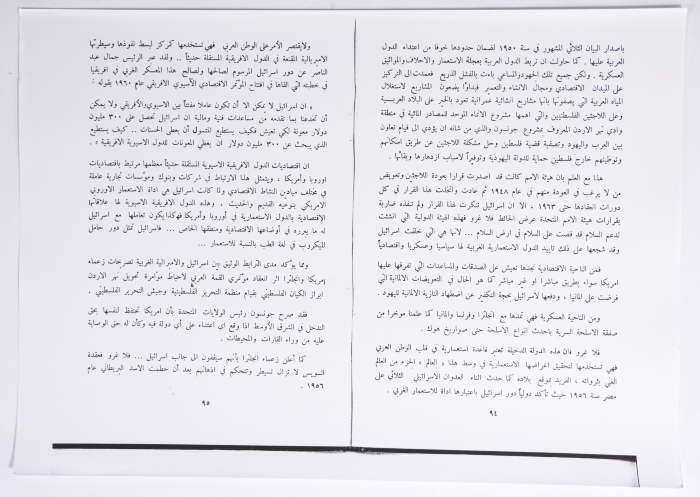 باصدار البيان الثلاثي المشهور في سنة ١٩٥٠ لضمان حدودها خوفا من اعتداء الدول
العربية عليها . كما حاولت ان تربط الدول العربية بعجلة الاستعمار والاحلاف والمواثيق
العسكرية . ولكن جميع تلك الجهود والمساعي باءت بالفشل الذريع فعمدت الى التركيز
على الميدان الاقتصادي ومجال الانشاء والتعمير فبدأوا يضعون المشاريع لاستغلال
المياه العربية التي يصفونها بانها مشاريع انشائية عمرانية تعود بالخير على البلاد العربية
وعلى اللاجئين الفلسطينيين والتي اهمها مشروع الانماء الموحد للمصادر المائية في منطقة
وادي نهر الاردن المعروف بمشروع جونسون والذي من شأنه ان يؤدي الى قيام تعاون
بين العرب واليهود وتصفية قضية فلسطين وحل مشكلة اللاجئين عن طريق اسكانهم
وتوطينهم خارج فلسطين حماية للدولة اليهودية وتوفيراً لاسباب ازدهارها وبقائها .
هذا مع العلم بان هيئة الامم كانت قد اصدرت قرارا بعودة اللاجئين وتعويض
من لا يرغب في العودة منهم في عام ١٩٤٨ ثم عادت واتخذت هذا القرار في كل
دورات انعقادها حتى ١٩٦٣ ، الا ان اسرائيل تنكرت لهذا القرار ولم تنفذه ضاربة
بقرارات هيئة الامم المتحدة عرض الحائط فلا غرو فهذه الهيئة الدولية التي انشئت
لدعم السلام قد قضت على السلام في ارض السلام ... لانها هي التي خلقت اسرائيل
وقد شجعها على ذلك تاييد الدول الاستعمارية الغربية لها سياسيا وعسكريا واقتصادياً
فمن الناحية الاقتصادية نجدها تعيش على الصدقات والمساعدات التي تغرقها عليها
امريكا سواء بطريق مباشر او غير مباشر كما هو الحال في التعويضات الالمانية التي
فرضت على المانيا ، ودفعها لاسرائيل بحجة التكفير عن اضطهاد النازية الالمانية لليهود .
ومن الناحية العسكرية فهي تمدها مع انجلترا وفرنسا والمانيا كما علمنا موخرا من
صفقة الاسلحة السرية باحدث انواع الاسلحة حتى صواريخ هوك .
فلا غرو فان هذه الدولة الدخيلة تعتبر قاعدة استعمارية في قلب الوطن العربي
فهي تستخدمها لتحقيق اغراضها الاستعمارية في وسط هذا « العالم » الجزء من العالم
الغني بثرواته ، الفريد بموقع بلاده كما حدث اثناء العدوان الاسرائيلي الثلاثي على
مصر سنة ١٩٥٦ حيث تأكد دولياً دور اسرائيل باعتبارها اداة للاستعمار الغربي .
٩٤
ولا يقتصر الأمر على الوطن العربي فهي تستخدمها كمركز لبسط نفوذها وسيطرتها
الامبريالية المقنعة في الدول الافريقية المستقلة حديثاً .. ولقد عبر الرئيس جمال عبد
الناصر عن دور اسرائيل المرسوم لصالحها ولصالح هذا المعسكر الغربي في افريقيا
في خطبته التي القاها في افتتاح المؤتمر الاقتصادي الاسيوي الافريقي عام ١٩٦٠ بقوله :
« ان اسرائيل لا يمكن الا أن تكون عاملا مفتتاً بين الاسيوي والافريقي ولا يمكن
أن تخدعنا بما تقدمه من مساعدات فنية ومالية ان اسرائيل تحصل على ٣٠٠ مليون
دولار معونة لكي تعيش فكيف يستطيع المتسول أن يعطي الحسنات .. كيف يستطيع
الذي يبحث عن ٣٠٠ مليون دولار ان يعطي المعونات للدول الاسيوية الافريقية » .
ان اقتصاديات الدول الافريقية الاسيوية المستقلة حديثاً معظمها مرتبط باقتصاديات
اوروبا وأمريكا ، ويتمثل هذا الارتباط في شركات وبنوك ومؤسسات تجارية عاملة
في مختلف ميادين النشاط الاقتصادي ولما كانت اسرائيل هي اداة الاستعمار الاوروبي
الامريكي بنوعيه القديم والحديث ، وهذه الدول الافريقية الاسيوية لها علاقاتها
الاقتصادية بالدول الاستعمارية في أوروبا وأمريكا فهكذا يكون تعاملها مع اسرائيل
له ما يبرره في أوضاعها الاقتصادية ومنطقها الخاص ... فاسرائيل تمثل دور حاملي
الميكروب في لغة الطب بالنسبة للاستعمار ...
ومما يؤكد مدى الترابط الوثيق بين اسرائيل والامبريالية الغربية تصريحات زعماء
امريكا وانجلترا اثر انعقاد مؤتمري القمة العربي لاحباط مؤامرة تحويل نهر الاردن
ابراز الكيان الفلسطيني بقيام منظمة التحرير الفلسطينية وجيش التحرير الفلسطيني .
فقد صرح جونسون رئيس الولايات المتحدة بأن امريكا تحتفظ لنفسها بحق
التدخل في الشرق الأوسط اذا وقع اي اعتداء على أي دولة فيه وكأن له حق الوصاية
عليه من وراء القارات والمحيطات .
كما أعلن زعماء انجلترا بأنهم سيقفون الى جانب اسرائيل ... فلا غرو فعقدة
السويس لا تزال تسيطر وتتحكم في اذهانهم بعد أن حطمت الاسد البريطاني عام
١٩٥٦ .
٩٥